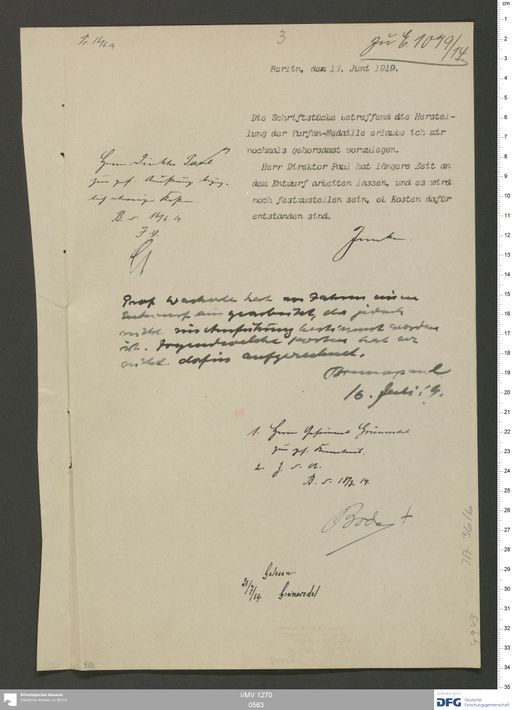 3
zu E 1049/14
Berlin, dem 15. Juni 1919.
Die Schriftstücke betreffend die Herstel-
lung der Turfan-Medaille erlaube ich mir
nochmals gehorsamst vorzulegen.
Herr Direktor Paul hat längere Zeit an
dem Entwurf arbeiten lassen, und es wird
noch festzustellen sein, ob Kosten dafür
entstanden sind.
Herrn Direktor Paul
zur gef. Äußerung
B. d. 16/6. 14.
Prof. Wackerle hat vor Jahren einen
Entwurf ausgearbeitet, der jedoch
nicht zur Ausführung bestimmt worden
ist. Irgendwelche Kosten hat er
nicht dafür aufgerechnet.
Bruno Paul
16. Juli 14.
1. Herrn Geheimrat Grünwedel
zur gf. Kenntnis.
2. z. d. A.
B. d. 18/7. 14.
Bode
Gelesen.
21/7/14. Grünwedel
TA 3616
4943
Ethnologisches Museum
Staatliche Museen zu Berlin
I/MV 1270
0563
gefördert durch
DFG Deutsche
Forschungsgemeinschaft
cm
1
2
3
4
5
6
7
8
9
10
11
12
13
14
15
16
17
18
19
20
21
22
23
24
25
26
27
28
29
30
31
32
33
34
35